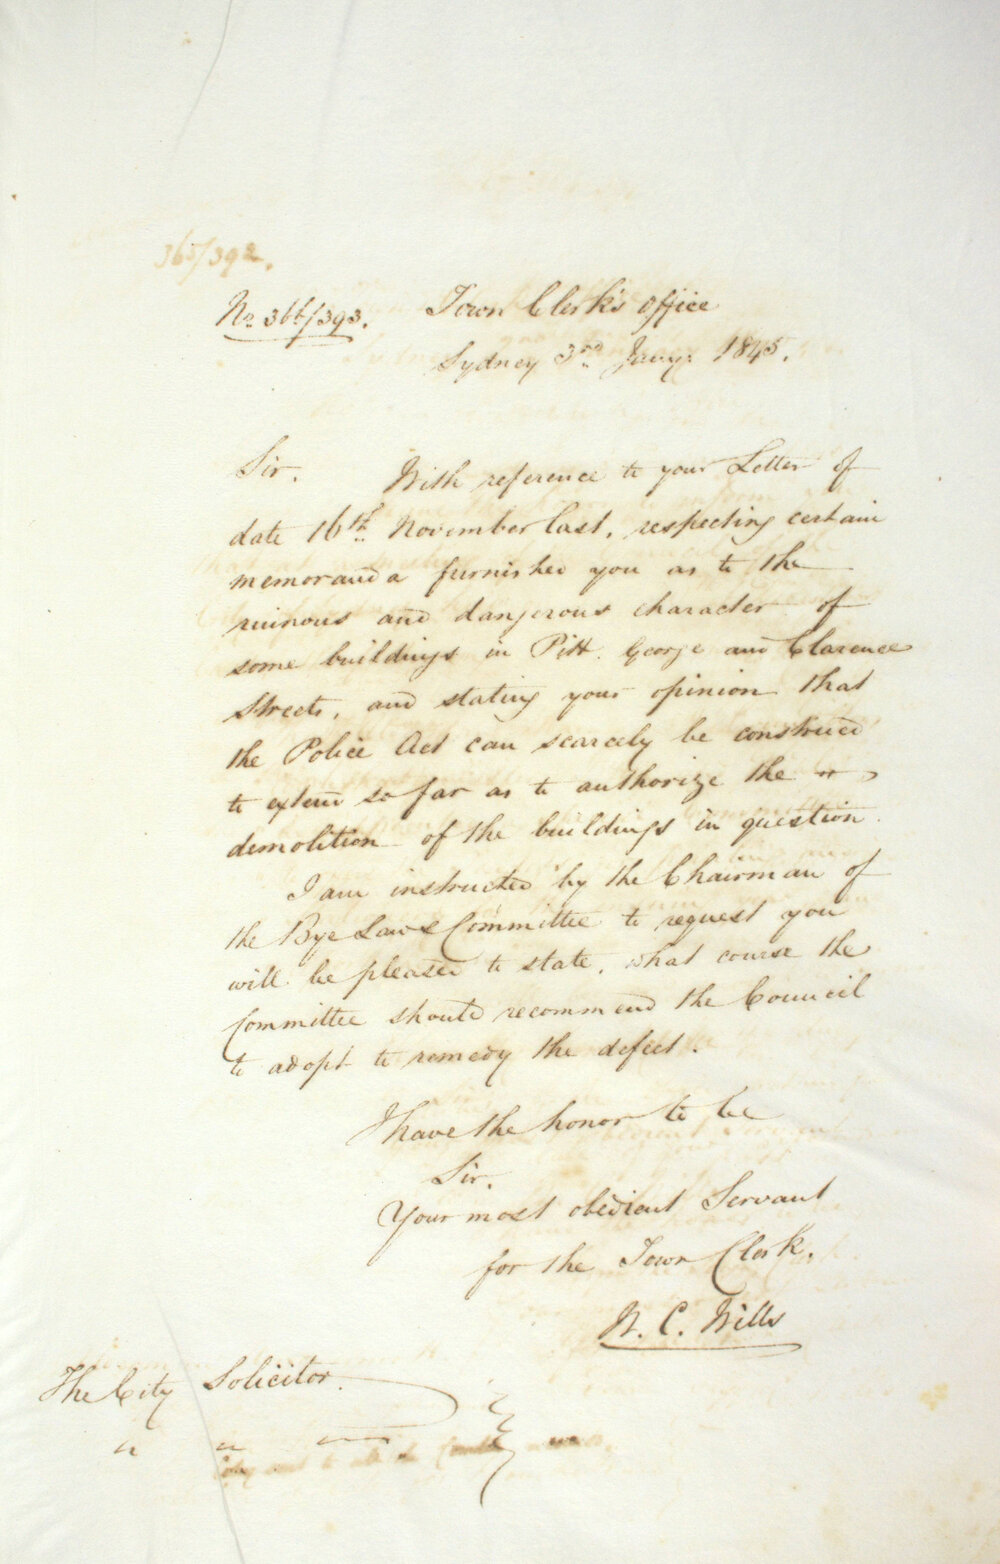 365/392.
No 366/393.
Town Clerk's Office
Sydney 3rd Jany. 1845.
Sir.
With reference to your Letter of
date 16th November last, respecting certain
memoranda furnished you as to the
ruinous and dangerous character of
some buildings in Pitt. George and Clarence
Streets, and stating your opinion that
the Police Act can scarcely be construed
to extend so far as to authorize the
demolition of the buildings in question.
I am instructed by the Chairman of
the Bye Laws Committee to request you
will be pleased to state, what course the
Committee should recommend the Council
to adopt to remedy the defect.
I have the honor to be
Sir.
Your most obedient Servant
for the Town Clerk.
W. C. Wills
The City Solicitor.
" "